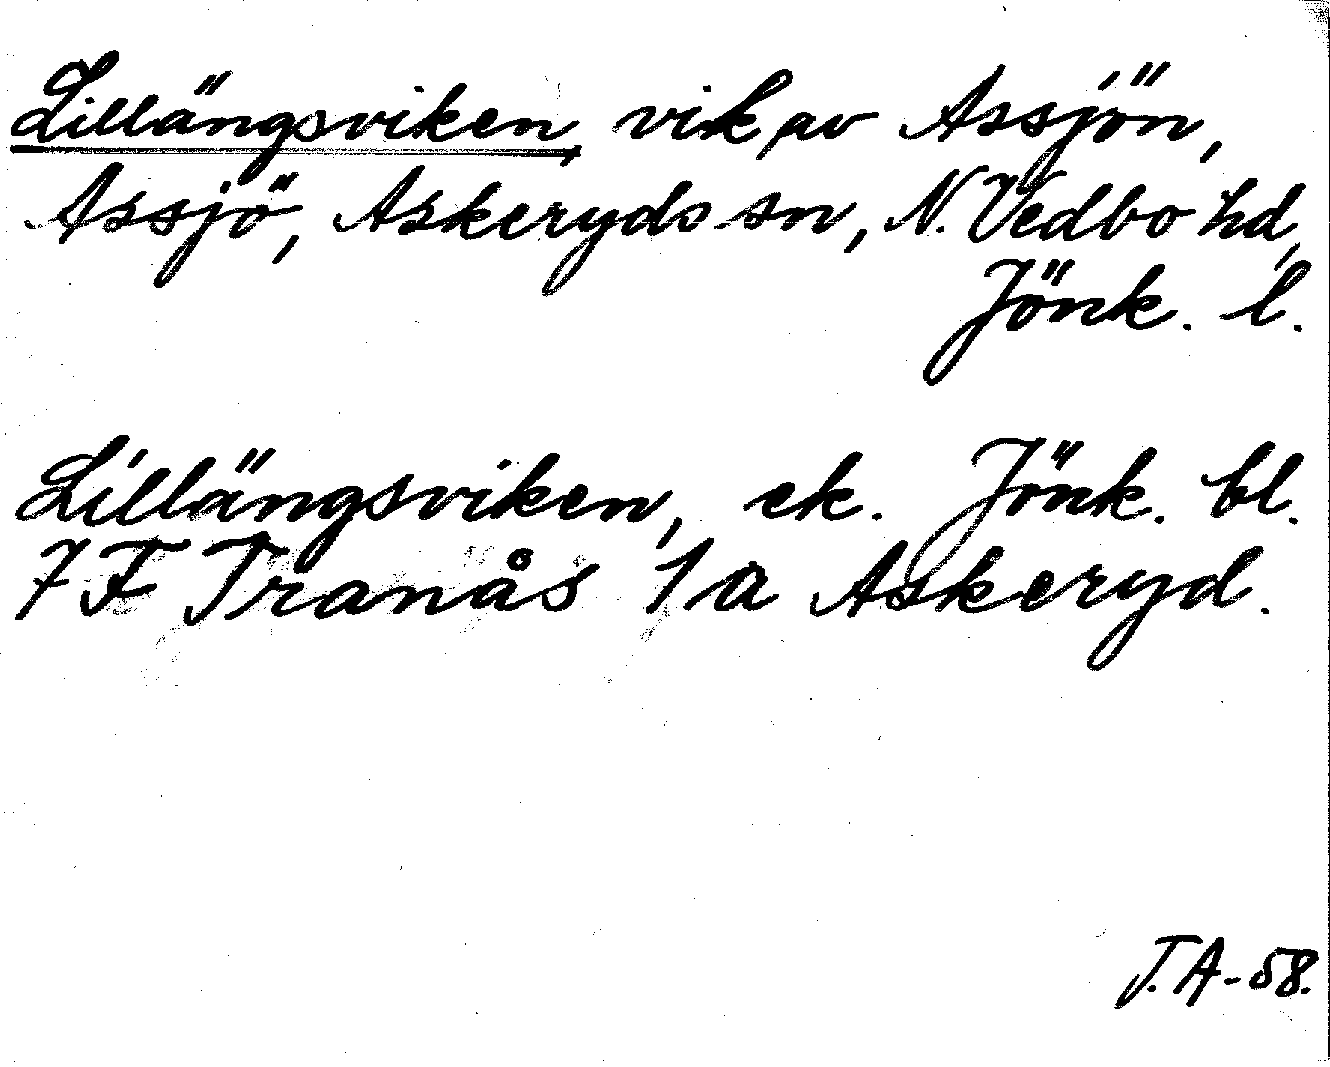 Lillängsviken, vik av Assjön,
Assjö, Askeryds sn, N. Vedbo hd,
Jönk. l.
Lillängsviken, ek. Jönk. bl.
7 F Tranås 1 a Askeryd.
J.A-58.